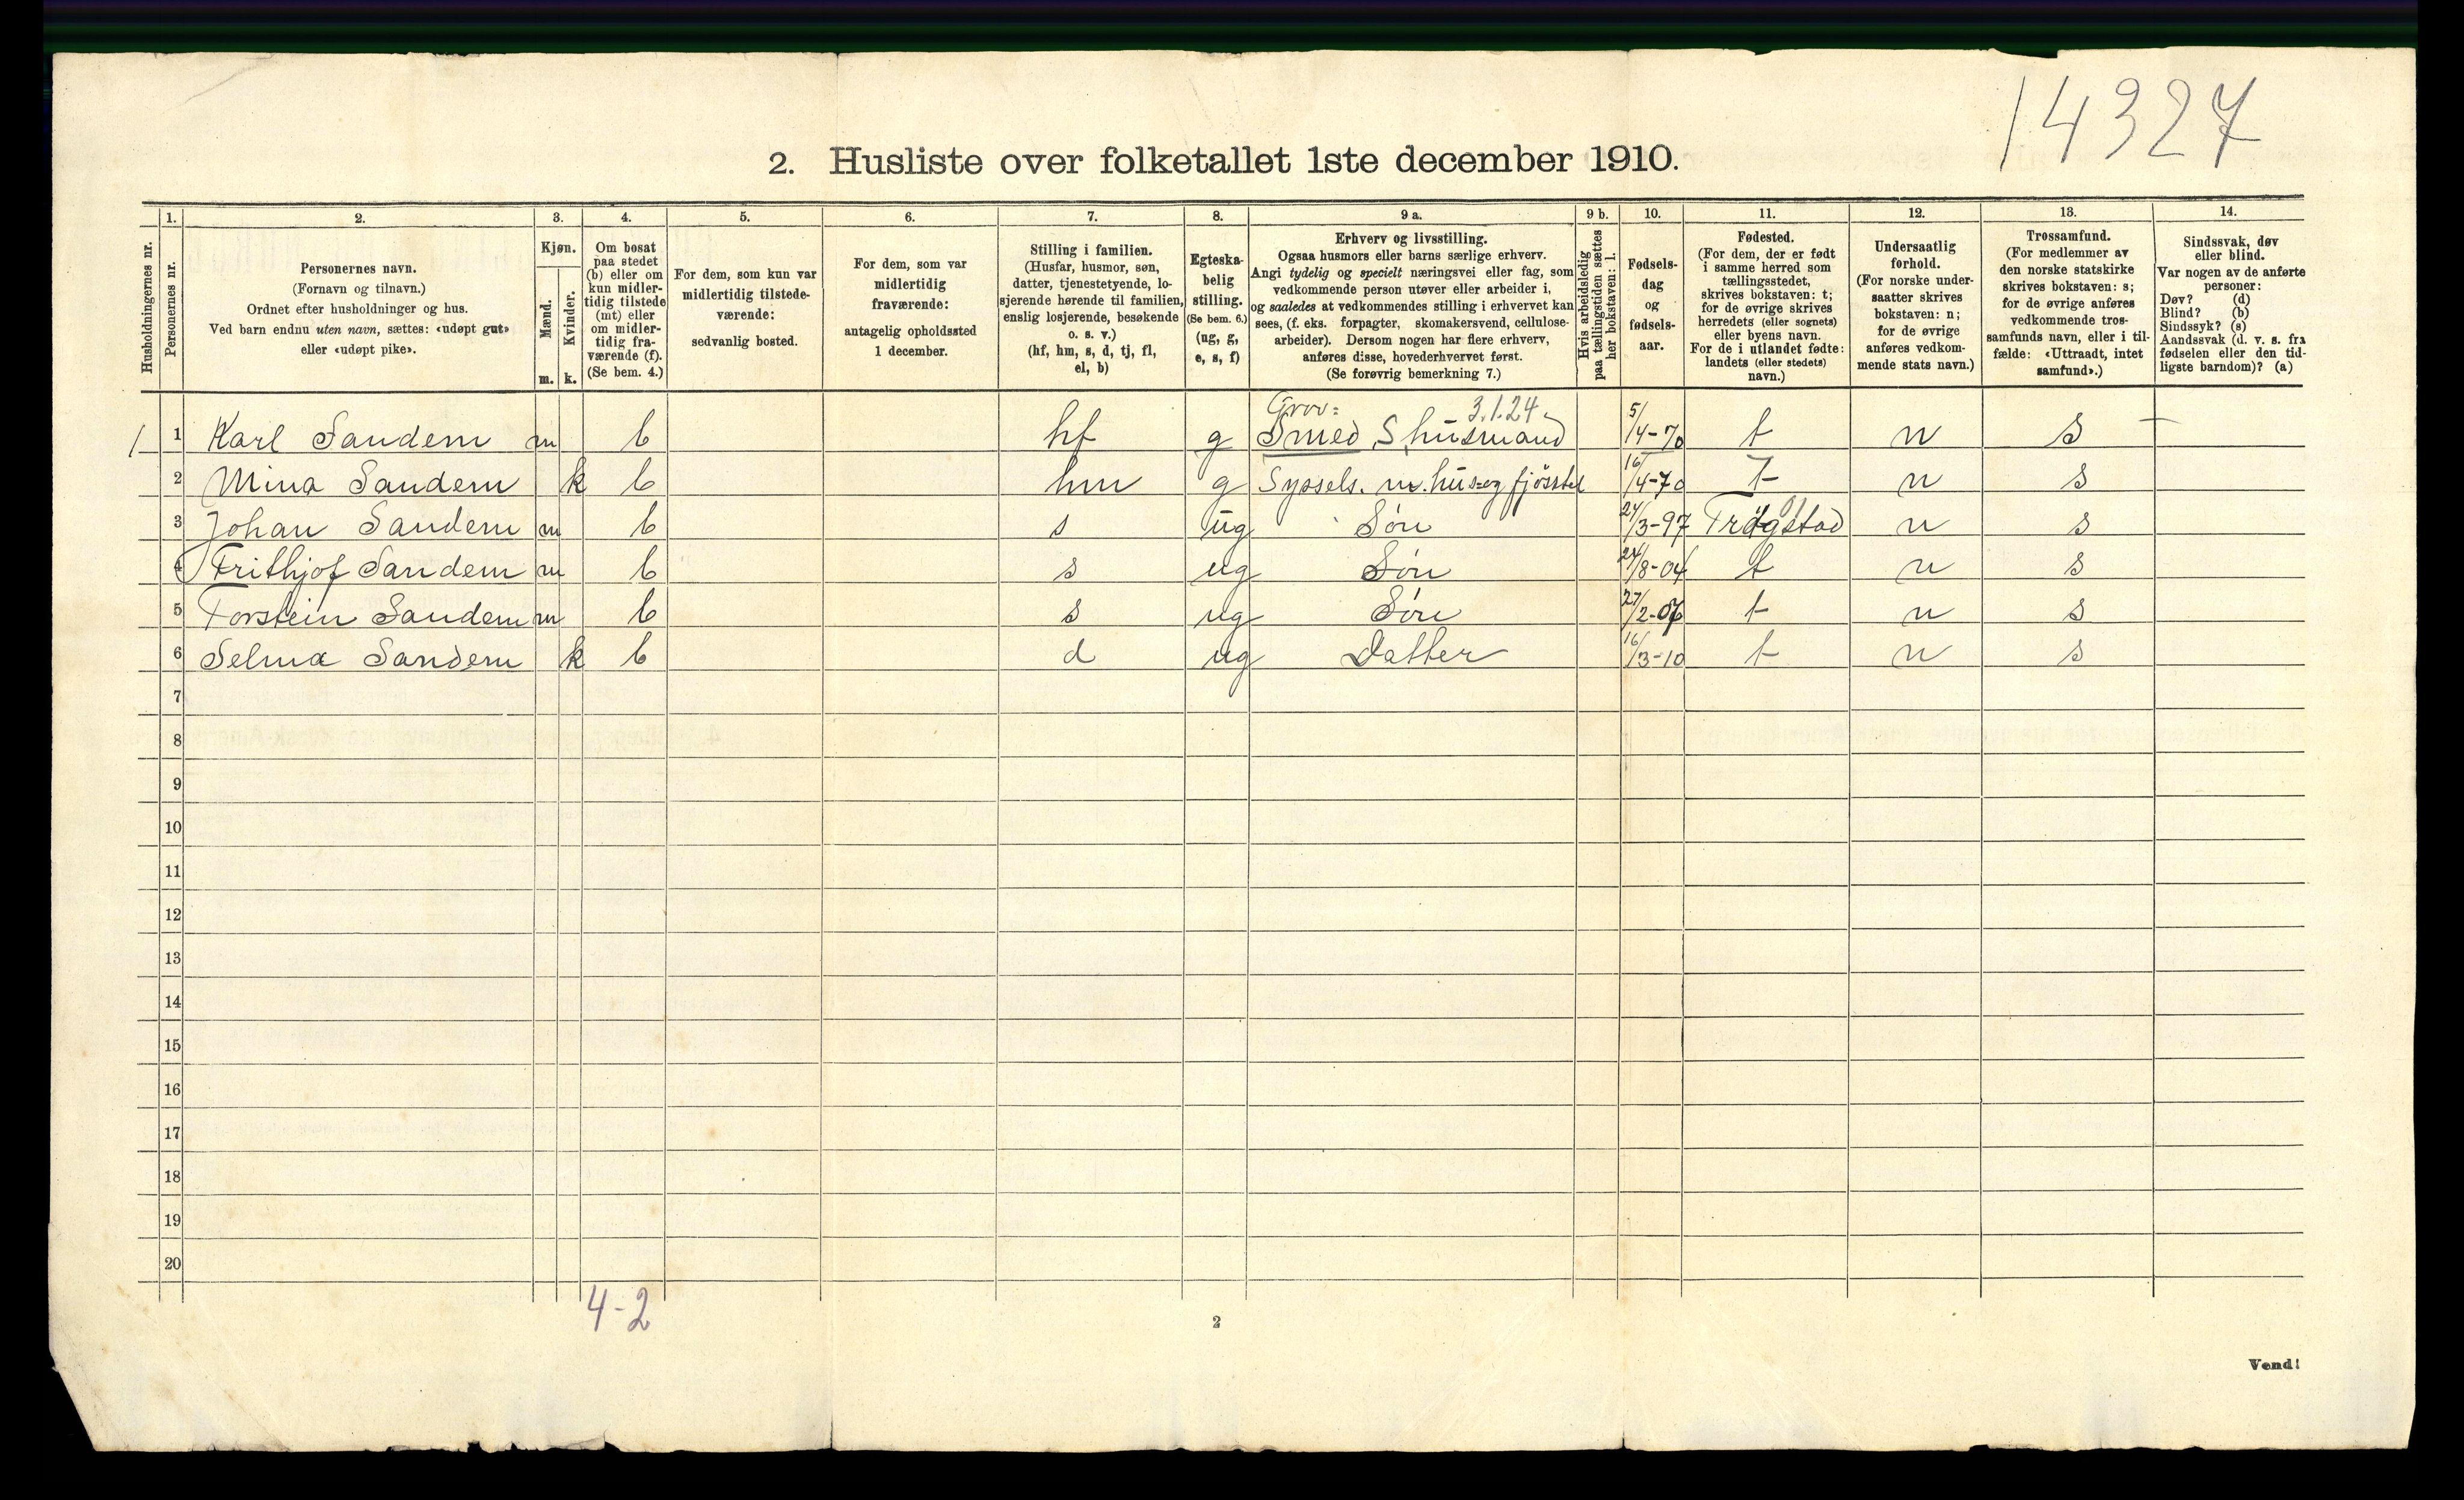 14327
2. Husliste over folketallet 1ste december 1910.
Husholdningernes nr.
1. Personernes nr.
2. Personernes navn. (Fornavn og tilnavn.) Ordnet efter husholdninger og hus. Ved barn endnu uten navn, sættes: «udøpt gut» eller «udøpt pike».
3. Kjøn. Mænd. m. Kvinder. k.
4. Om bosat paa stedet (b) eller om kun midler- tidig tilstede (mt) eller om midler- tidig fra- værende (f). (Se bem. 4.)
5. For dem, som kun var midlertidig tilstede- værende: sedvanlig bosted.
6. For dem, som var midlertidig fraværende: antagelig opholdssted 1 december.
7. Stilling i familien. (Husfar, husmor, søn, datter, tjenestetyende, lo- sjerende hørende til familien, enslig losjerende, besøkende o. s. v.) (hf, hm, s, d, tj, fl, el, b)
8. Egteska- belig stilling. (Se bem. 6.) (ug, g, e, s, f)
9 a. Erhverv og livsstilling. Ogsaa husmors eller barns særlige erhverv. Angi tydelig og specielt næringsvei eller fag, som vedkommende person utøver eller arbeider i, og saaledes at vedkommendes stilling i erhvervet kan sees, (f. eks. forpagter, skomakersvend, cellulose- arbeider). Dersom nogen har flere erhverv, anføres disse, hovederhvervet først. (Se forøvrig bemerkning 7.)
9 b. Hvis arbeidsledig paa tællingstiden sættes her bokstaven: l.
10. Fødsels- dag og fødsels- aar.
11. Fødested. (For dem, der er født i samme herred som tællingsstedet, skrives bokstaven: t; for de øvrige skrives herredets (eller sognets) eller byens navn. For de i utlandet fødte: landets (eller stedets) navn.)
12. Undersaatlig forhold. (For norske under- saatter skrives bokstaven: n; for de øvrige anføres vedkom- mende stats navn.)
13. Trossamfund. (For medlemmer av den norske statskirke skrives bokstaven: s; for de øvrige anføres vedkommende tros- samfunds navn, eller i til- fælde: «Uttraadt, intet samfund».)
14. Sindssvak, døv eller blind. Var nogen av de anførte personer: Døv? (d) Blind? (b) Sindssyk? (s) Aandssvak (d. v. s. fra fødselen eller den tid- ligste barndom)? (a)
Grov= 3.1.24
1 1 Karl Sandem m b hf g Smed, Shusmand 5/4-70 t n s —
2 Mina Sandem k b hm g Syssels. m. hus-og fjösstel 16/4-70 t n s
3 Johan Sandem m b s ug Søn 24/3-97 Trøgstad n s
4 Frithjof Sandem m b s ug Søn 24/8-04 t n s
5 Torstein Sandem m b s ug Søn 27/2-07 t n s
6 Selma Sandem k b d ug Datter 16/3-10 t n s
7
8
9
10
11
12
13
14
15
16
17
18
19
20
4-2
2
Vend!